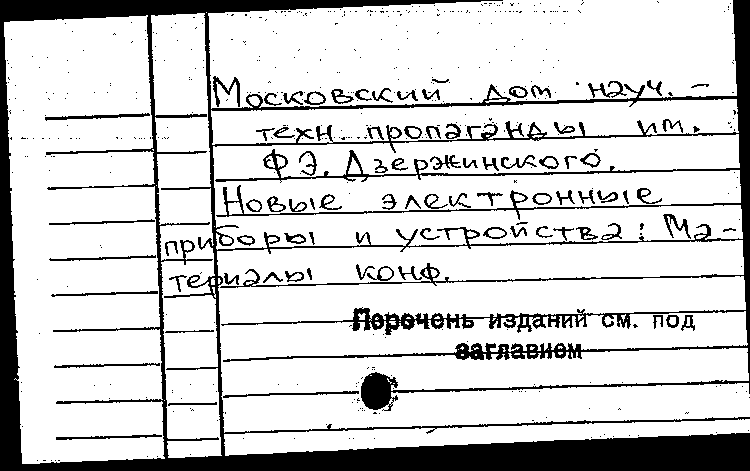 Московский дом науч.-
техн. пропаганды им.
Ф.Э. Дзержинского.
Новые электронные
приборы и устройства: Ма-
териалы конф.
Перечень изданий см. под
заглавием